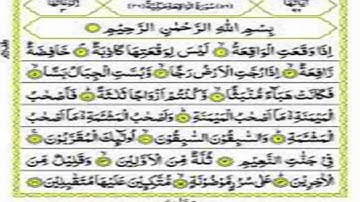 بِسْمِ اللّٰهِ الرَّحْمٰنِ الرَّحِيْمِ
اِذَا وَقَعَتِ الْوَاقِعَةُ ۙ لَيْسَ لِوَقْعَتِهَا كَاذِبَةٌ ۘ خَافِضَةٌ
رَّافِعَةٌ ۙ اِذَا رُجَّتِ الْاَرْضُ رَجًّا ۙ وَّبُسَّتِ الْجِبَالُ بَسًّا ۙ
فَكَانَتْ هَبَآءً مُّنْۢبَثًّا ۙ وَّكُنْتُمْ اَزْوَاجًا ثَلٰثَةً ؕ فَاَصْحٰبُ
الْمَيْمَنَةِ ۙ مَاۤ اَصْحٰبُ الْمَيْمَنَةِ ؕ وَاَصْحٰبُ الْمَشْـَٔمَةِ ۙ مَاۤ اَصْحٰبُ
الْمَشْـَٔمَةِ ؕ وَالسّٰبِقُوْنَ السّٰبِقُوْنَ ۙ اُولٰٓئِكَ الْمُقَرَّبُوْنَ ۚ
فِيْ جَنّٰتِ النَّعِيْمِ ثُلَّةٌ مِّنَ الْاَوَّلِيْنَ ۙ وَقَلِيْلٌ مِّنَ
الْاٰخِرِيْنَ ؕ عَلٰى سُرُرٍ مَّوْضُوْنَةٍ ۙ مُّتَّكِـِٕيْنَ عَلَيْهَا مُتَقٰبِلِيْنَ